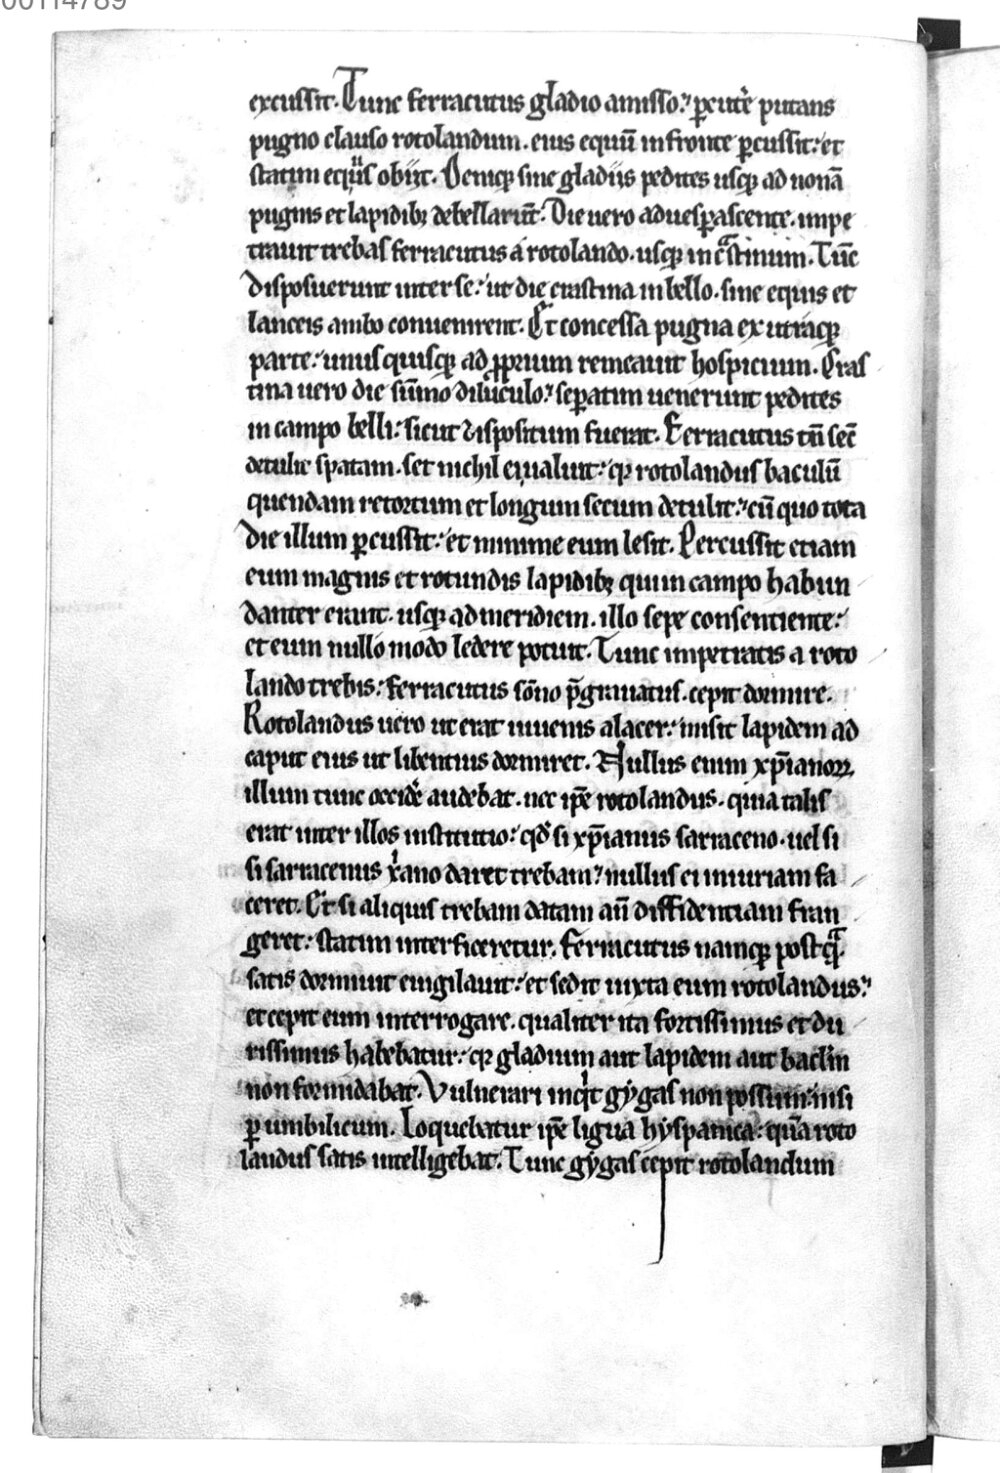 00114789
excussit. Tunc ferracutus gladio amisso. ꝑcute᷑ putans
pugno clauso rotolandum. eius equū in fronte ꝑcussit. et
statim equus obiit. Deniqꝫ sine gladiis pedites usqꝫ ad nonā
pugnis et lapidibꝫ debellarūt. Die uero aduesꝑascente. impe
trauit trebas ferracutus a rotolando. usqꝫ in cͣstinum. Tūc
disposuerunt inter se. ut die crastina in bello. sine equis et
lanceis ambo conuenirent. Et concessa pugna ex utraqꝫ
parte. unusquisqꝫ ad ꝓprium remeauit hospicium. Cras
tina uero die sūmo diluculo. seꝑatim uenerunt pedites
in campo belli. sicut dispositum fuerat. Ferracutus tn̄ sec̄
detulit spatam. set nichil ei ualuit. qꝛ rotolandus baculū
quendam retortum et longum secum detulit. cū quo tota
die illum ꝑcussit. et minime eum lesit. Percussit etiam
eum magnis et rotundis lapidibꝫ qui in campo habun
danter erant. usqꝫ ad meridiem. illo sepe consentiente.
et eum nullo modo ledere potuit. Tunc impetratis a roto
lando trebis. ferracutus sōno p̄grauatus. cepit dormire.
Rotolandus uero ut erat iuuenis alacer. misit lapidem ad
caput eius ut libentius dormiret. Nullus enim xp̄ianoꝝ
illum tunc occide᷑ audebat. nec ip̄e rotolandus. quia talis
erat inter illos institutio. qd̄ si xp̄ianus sarraceno. uel si
si sarracenus xⁱano daret trebam. nullus ei iniuriam fa
ceret. Et si aliquis trebam datam an̄ diffidentiam fran
geret. statim interficeretur. Ferracutus namqꝫ postqͣ
satis dormiuit euigilauit. et sedit iuxta eum rotolandus.
et cepit eum interrogare. qualiter ita fortissimus et du
rissimus habebatur. qꝛ gladium aut lapidem aut baclm̄
non formidabat. Vulnerari inqⁱt gygas non possum. nisi
ꝑ umbilicum. Loquebatur ip̄e ligua hyspanica. quā roto
landus satis intelligebat. Tunc gygas cepit rotolandum